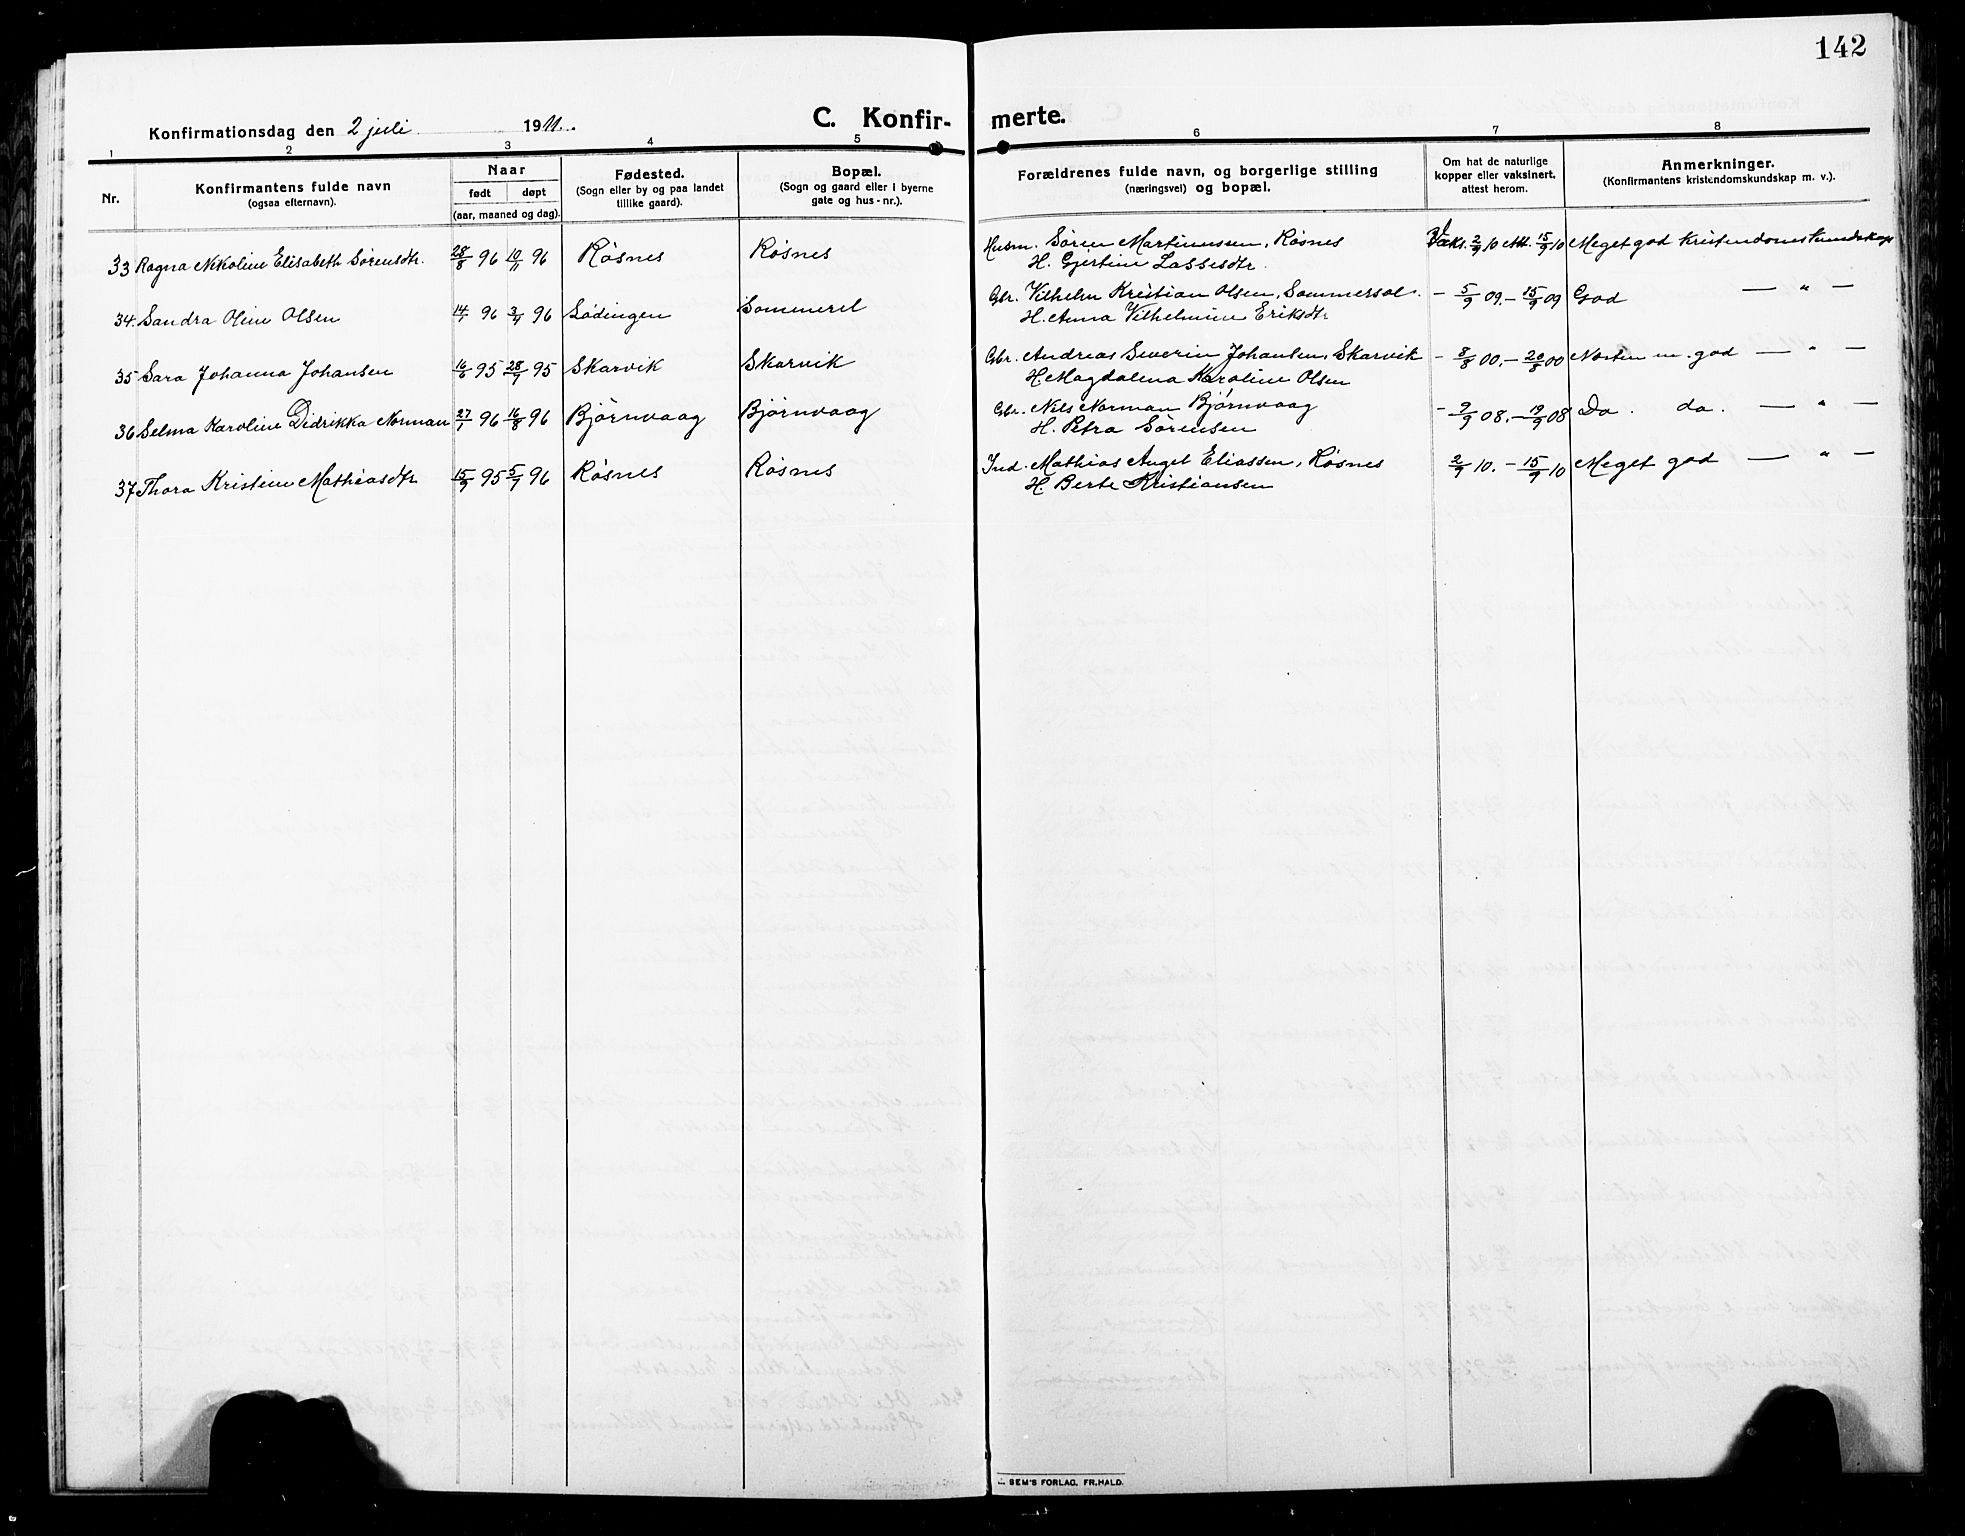 142
Konfirmationsdag den 2 juli 1911.
C. Konfir-merte.
1 2 3 4 5 6 7 8
Nr.
Konfirmantens fulde navn
(ogsaa efternavn).
Naar
født døpt
(aar, maaned og dag).
Fødested.
(Sogn eller by og paa landet
tillike gaard).
Bopæl.
(Sogn og gaard eller i byerne
gate og hus-nr.).
Forældrenes fulde navn, og borgerlige stilling
(næringsvei) og bopæl.
Om hat de naturlige
kopper eller vaksinert,
attest herom.
Anmerkninger.
(Konfirmantens kristendomskundskap m. v.).
33 Ragna Nikoline Elisabeth Sørensdtr. 28/8 96 10/11 96 Røsnes Røsnes Husm. Søren Martinussen, Røsnes Vaks. 2/9 10 Att. 15/9 10 Meget god Kristendomskundskap
H. Gjertine Lassesdtr.
34. Sandra Oline Olsen 14/1 96 3/4 96 Lødingen Sommerel Gbr. Vilhelm Kristian Olsen, Sommersel. - 5/9 09. - 15/9 09 God — " —
H. Anna Vilhelmine Eriksdtr
35 Sara Johanna Johansen 16/6 95 28/7 95 Skarvik Skarvik Gbr. Andreas Severin Johansen, Skarvik - 8/8 00. - 20/8 00 Næsten m. god — " —
H. Magdalena Karoline Olsen
36 Selma Karoline Didrikka Norman 27/1 96 16/8 96 Bjørnvaag Bjørnvaag Gbr. Nils Norman Bjørnvaag - 9/9 08. - 19/9 08 Do. do. — " —
H. Petra Sørensen
37 Thora Kristine Mathiasdtr 15/9 95 5/7 96 Røsnes Røsnes Ind. Mathias Angel Eliassen, Røsnes 2/9 10. - 15/9 10 Meget god — " —
H. Berte Kristiansen
SEM'S FORLAG, FR. HALD.